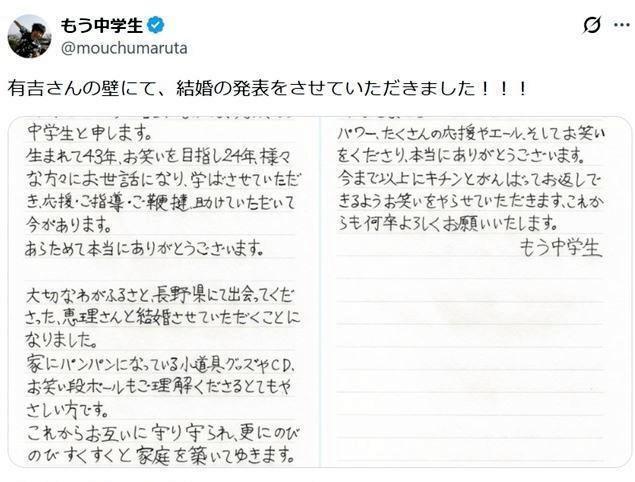 もう中学生
@mouchumaruta
有吉さんの壁にて、結婚の発表をさせていただきました！！！
中学生と申します。
生まれて43年、お笑いを目指し24年、様々
な方々にお世話になり、学ばさせていただ
き、応援・ご指導・ご鞭撻、助けていただいて
今があります。
あらためて本当にありがとうございます。
大切なわがふるさと、長野県にて出会ってくだ
さった、恵理さんと結婚させていただくことに
なりました。
家にパンパンになっている小道具、グッズやCD、
お笑い段ボールもご理解くださるとてもや
さしい方です。
これからお互いに守り守られ、更にのび
のびすくすくと家庭を築いてゆきます。
パワー、たくさんの応援やエール、そしてお笑い
をくださり、本当にありがとうございます。
今まで以上にキチンとがんばってお返しで
きるようお笑いをやらせていただきます、これか
らも何卒よろしくお願いいたします。
もう中学生